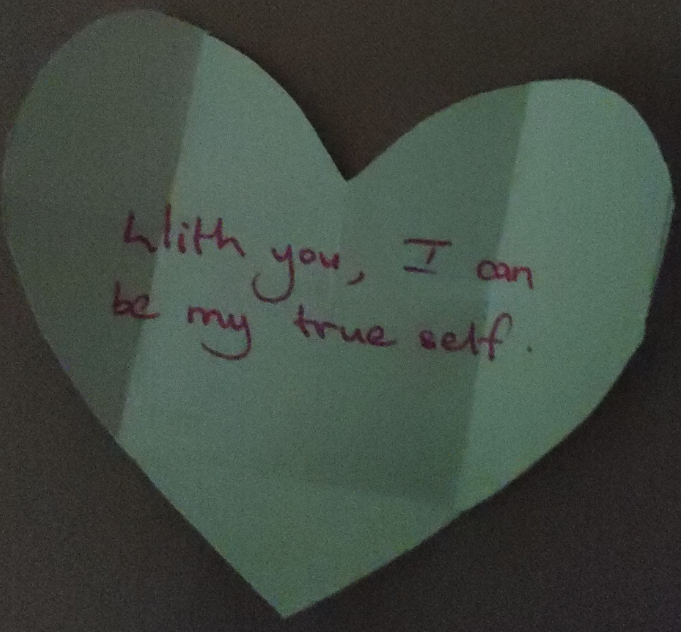 With you, I can
be my true self.